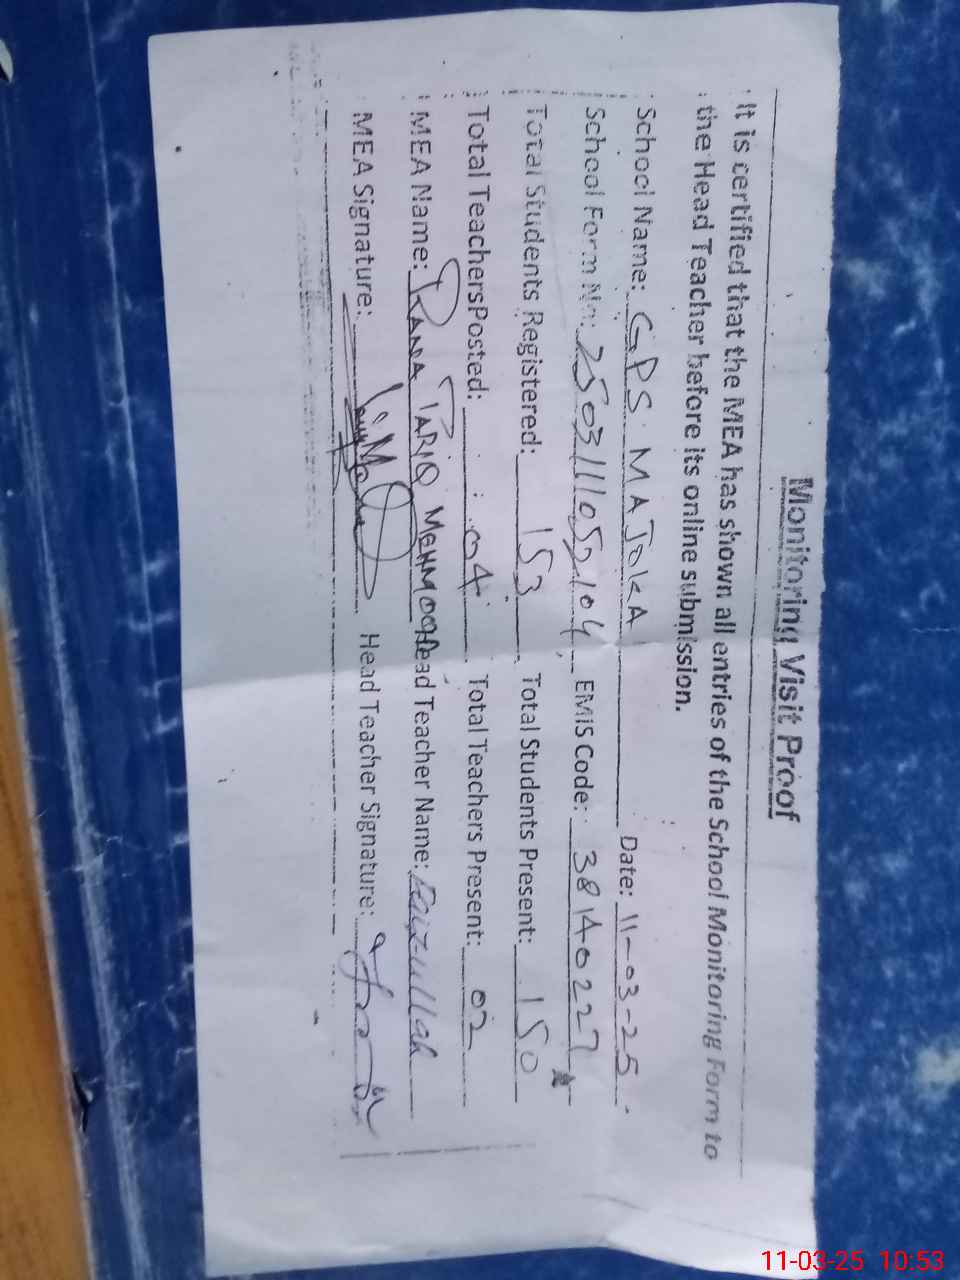 Monitoring Visit Proof
It is certified that the MEA has shown all entries of the School Monitoring Form to
the Head Teacher before its online submission.
School Name: GPS. MAJOKA Date: 11-03-25
School Form No: 2503111052104 EMIS Code: 38140227
Total Students Registered: 153 Total Students Present: 150
Total Teachers Posted: 04 Total Teachers Present: 02
MEA Name: RANA TARIQ MEHMOOD Head Teacher Name: Faizullah
MEA Signature: Head Teacher Signature:
11-03-25 10:53